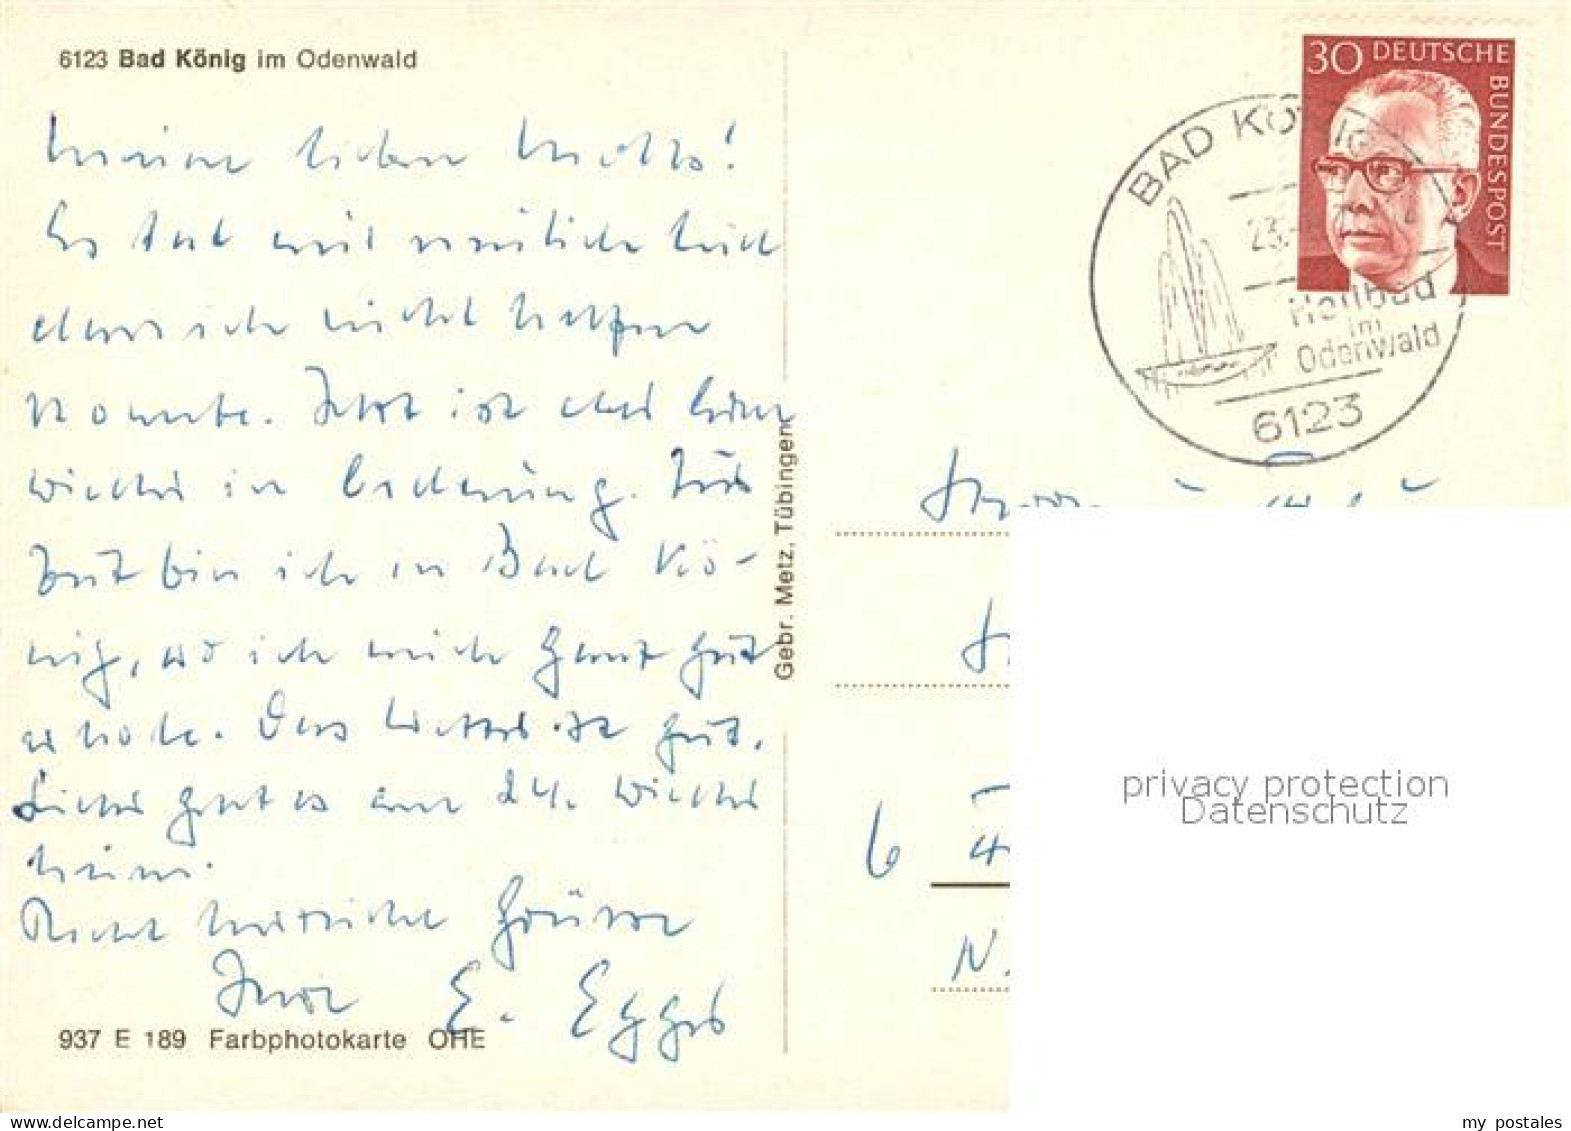 6123 Bad König im Odenwald
Meine lieben
Es tat mir neulich leid
dass ich nicht helfen
konnte. Jetzt ist alles
wieder in Ordnung. Zur
Zeit bin ich in Bad Kö-
nig, wo ich mich ganz gut
erhole. Das Wetter ist gut.
Leider geht es am 24. wieder
heim.
Recht herzliche Grüsse
Ihre E. Eggers
937 E 189 Farbphotokarte OHE
Gebr. Metz, Tübingen
30 DEUTSCHE
BUNDESPOST
BAD KÖNIG
23.
Heilbad
im
Odenwald
6123
6
privacy protection
Datenschutz
my postales